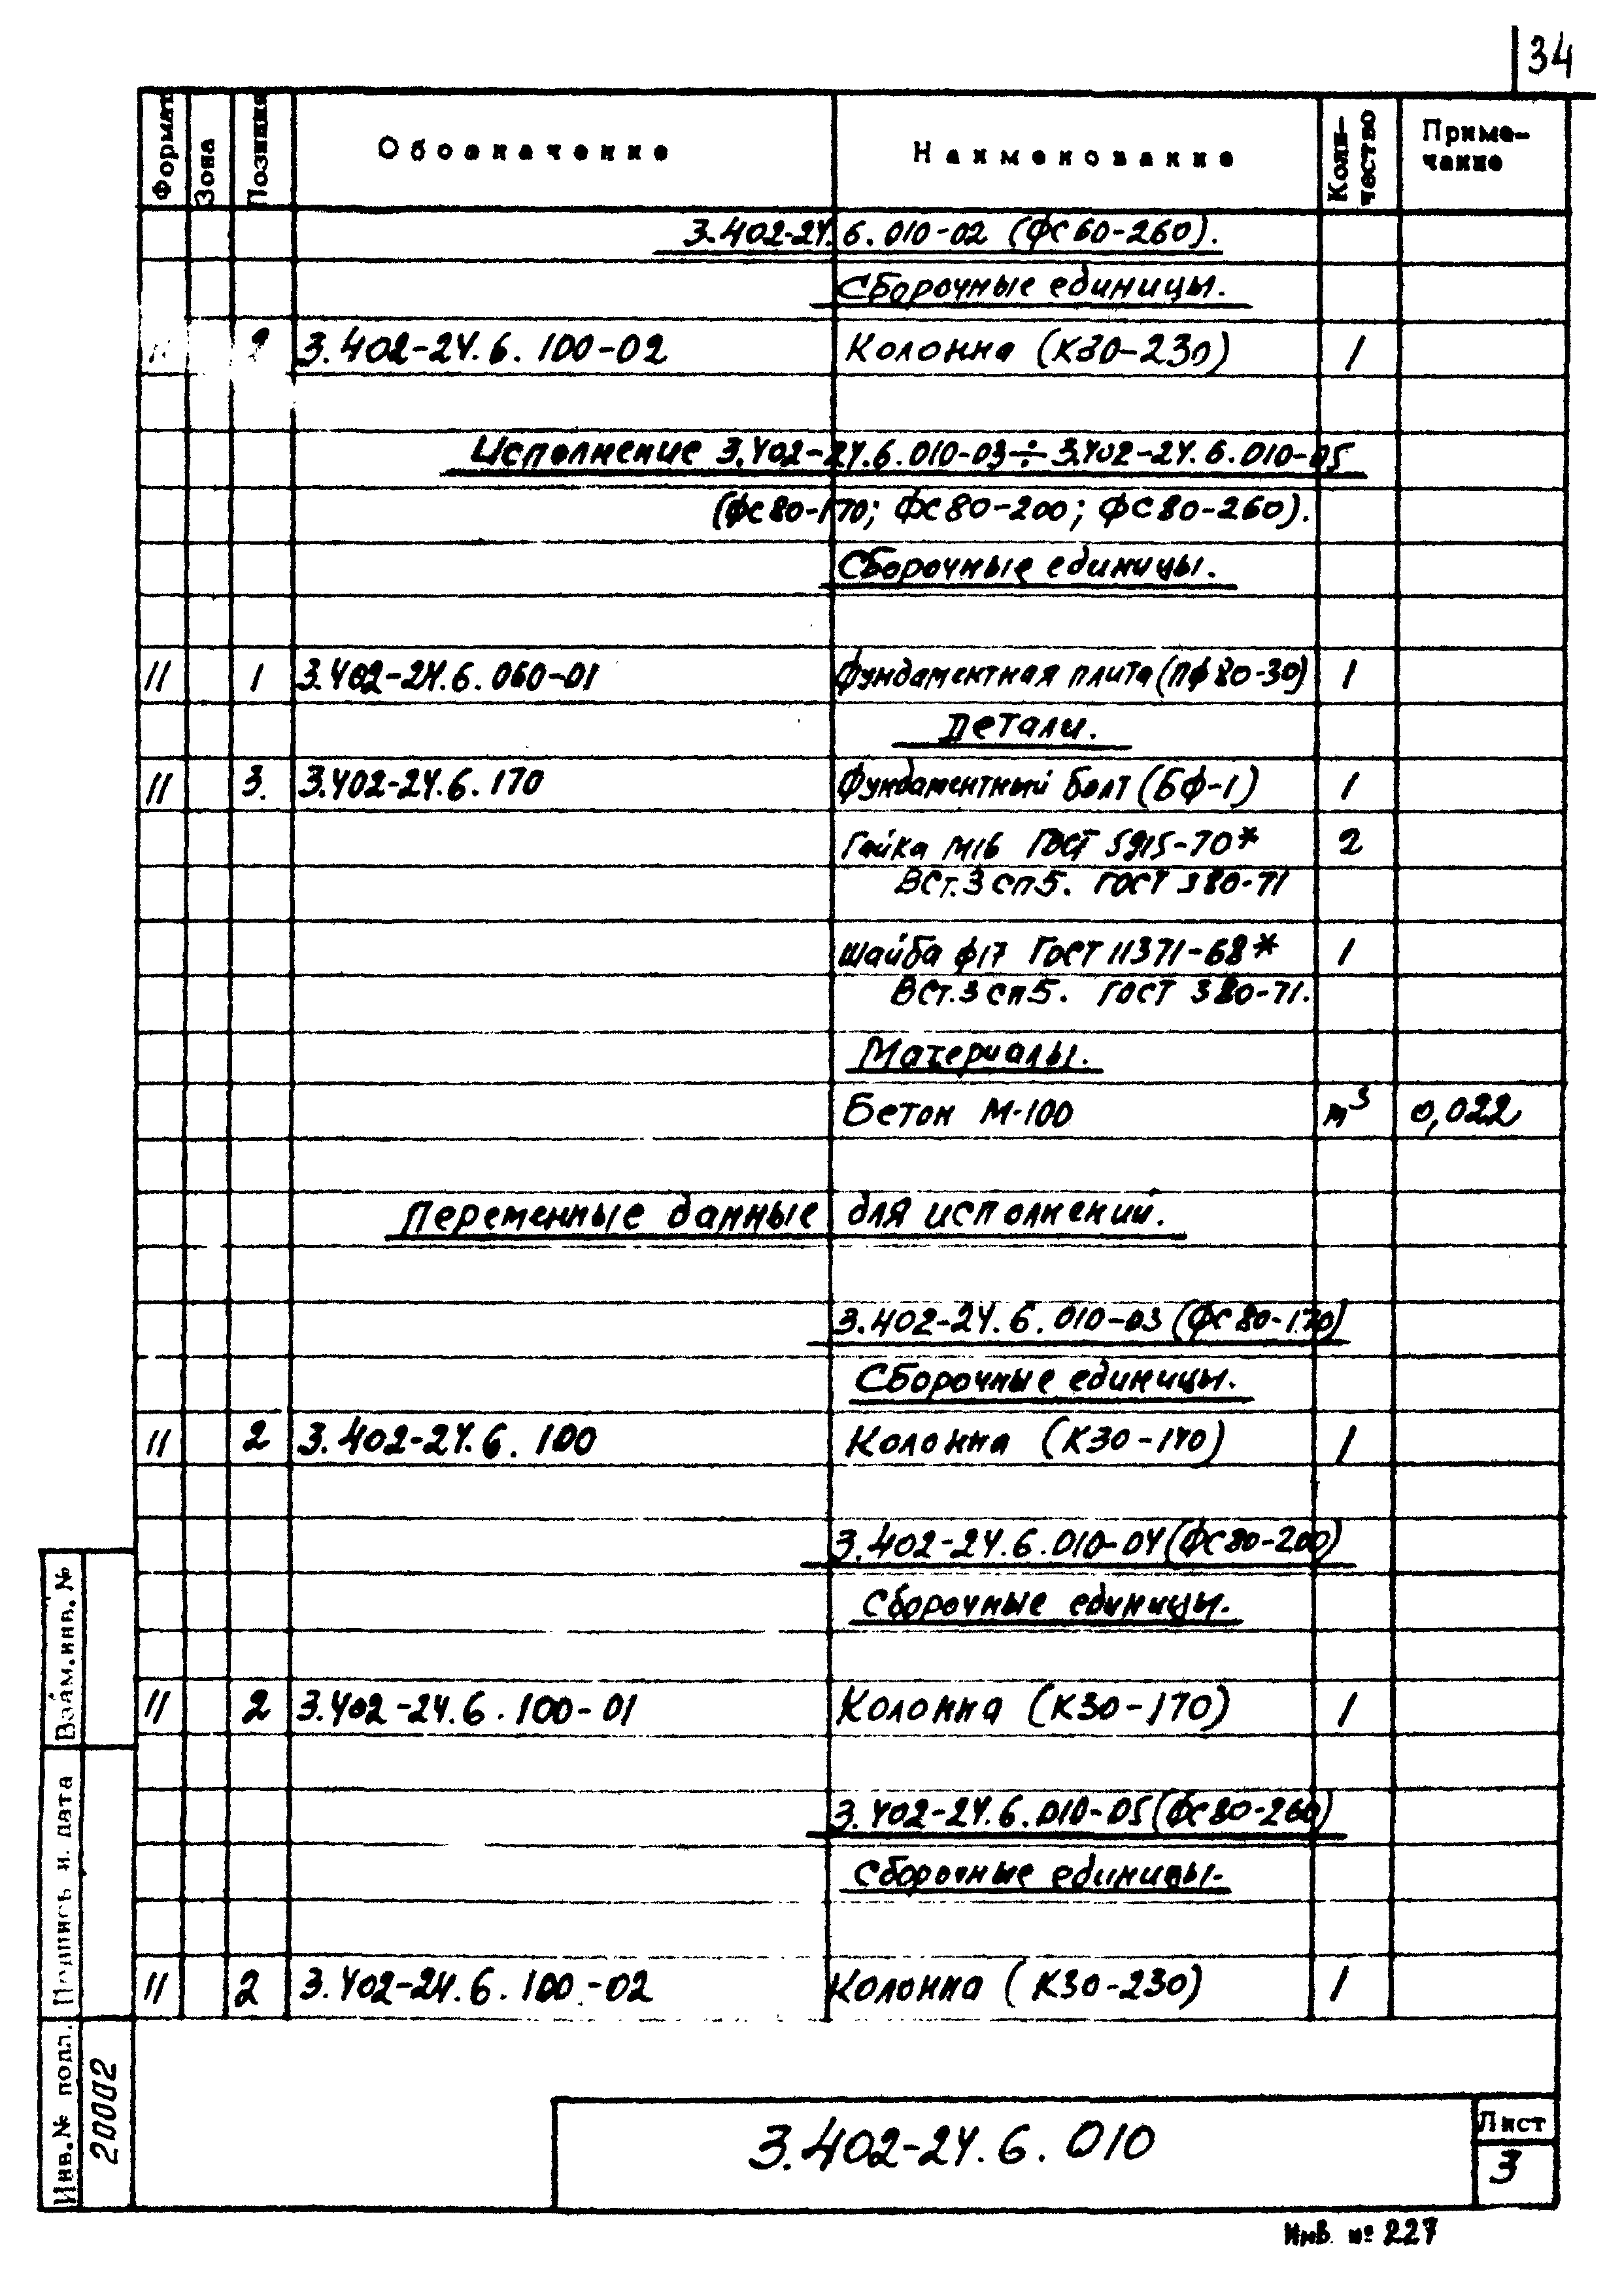 34
Формат Зона Позиция Обозначение Наименование Коли-чество Приме-чание
3.402-24.6.010-02 (ФС60-260).
Сборочные единицы.
11 2 3.402-24.6.100-02 Колонна (К30-230) 1
Исполнение 3.402-24.6.010-03÷3.402-24.6.010-05
(ФС80-170; ФС80-200; ФС80-260).
Сборочные единицы.
11 1 3.402-24.6.060-01 Фундаментная плита (ПФ80-30) 1
Детали.
11 3. 3.402-24.6.170 Фундаментный болт (БФ-1) 1
Гайка М16 ГОСТ 5915-70* 2
ВСт.3сп5. ГОСТ 380-71
Шайба ф17 ГОСТ 11371-68* 1
ВСт.3сп.5. ГОСТ 380-71.
Материалы.
Бетон М-100 м³ 0,022
Переменные данные для исполнений.
3.402-24.6.010-03 (ФС80-170)
Сборочные единицы.
11 2 3.402-24.6.100 Колонна (К30-140) 1
3.402-24.6.010-04 (ФС80-200)
Сборочные единицы.
11 2 3.402-24.6.100-01 Колонна (К30-170) 1
3.402-24.6.010-05 (ФС80-260)
Сборочные единицы.
11 2 3.402-24.6.100-02 Колонна (К30-230) 1
Взам.инв.№
Подпись и дата
Инв.№ подл. 20002
3.402-24.6.010
Лист
3
Инв. № 227